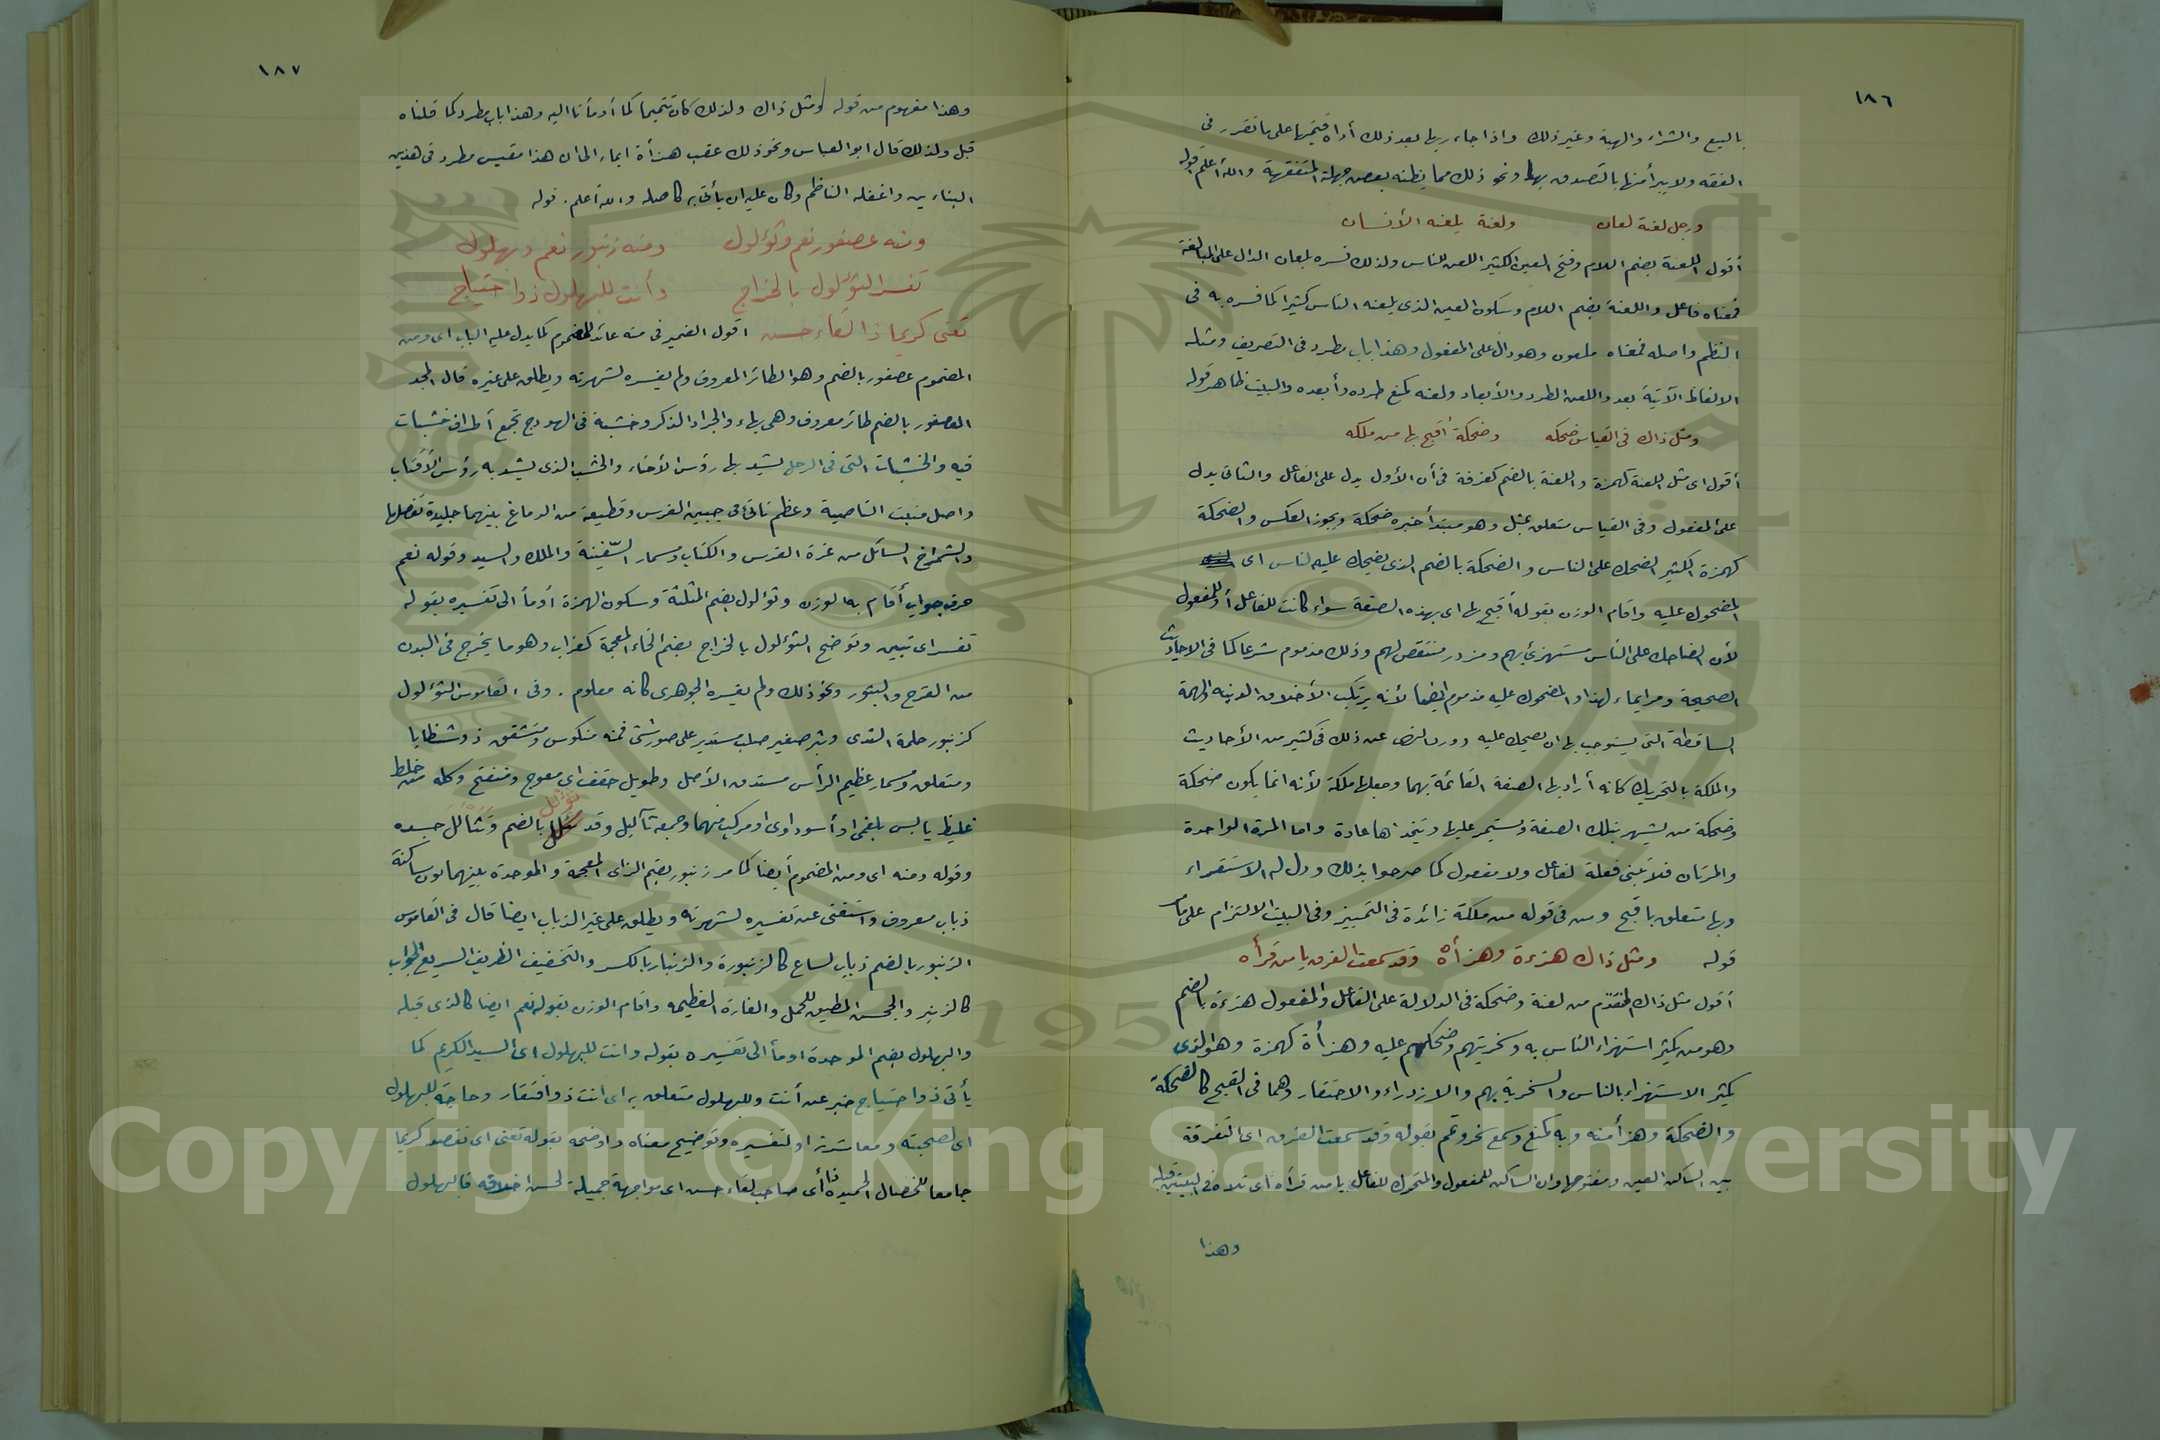 ١٨٦
بالبيع والشراء والهبة وغير ذلك واذا جاء ربها بعد ذلك أداه قيمتها على ما تقرر في
الفقه ولا يبرأ منها بالتصدق بها ونحو ذلك مما يظنه بعض جهلة المتفقهة والله أعلم قوله
ورجل لعنة لعان ولعنة يلعنه الأنسان
أقول اللعنة بضم اللام وفتح العين الكثير اللعن للناس ولذلك فسره بلعان الدال على المبالغة
فمعناه فاعل واللعنة بضم اللام وسكون العين الذى يلعنه الناس كثيرا كما فسره به في
النظم واصله فمعناه ملعون وهو دال على المفعول وهذا باب مطرد في التصريف ومثله
الالفاظ الآتية بعد واللعن الطرد والأبعاد ولعنه كمنع طرده وأبعده والبيت ظاهر قوله
ومثل ذاك في القياس ضحكه وضحكة أقبح بها من ملكه
أقول اى مثل اللعنة كهمزة واللعنة بالضم كغرفة في أن الأول يدل على الفاعل والثانى يدل
على المفعول وفي القياس متعلق بمثل وهو مبتدأ خبره ضحكة ويجوز العكس والضحكة
كهمزة الكثير الضحك على الناس والضحكة بالضم الذى يضحك عليه الناس اى
المضحوك عليه واقام الوزن بقوله أقبح بها اى بهذه الصفة سواء كانت للفاعل أو للمفعول
لأن الضاحك على الناس مستهزئ بهم ومزدر منتقص لهم وذلك مذموم شرعا كما في الاحاديث
الصحيحة ومر ايماء لهذا والمضحوك عليه مذموم ايضا لأنه يرتكب الأخلاق الدنيه والهمة
الساقطة التى يستوجب بها ان يضحك عليه وورد النهى عن ذلك في كثير من الأحاديث
والملكة بالتحريك كانه أراد بها الصفة القائمة بهما وجعلها ملكة لأنه انما يكون ضحكة
وضحكة من يشهر بتلك الصفة ويستمر عليها ويتخذها عادة واما المرة الواحدة
والمرتان فلا تبنى فعلة لفاعل ولا مفعول كما صرحوا بذلك ودل له الاستقراء
وبها متعلق باقبح ومن في قوله من ملكة زائدة في التمييز وفي البيت الالتزام على مامر
قوله ومثل ذاك هزءة وهزأه وقد سمعت الفرق يا من قرأه
أقول مثل ذاك المتقدم من لعنة وضحكة في الدلالة على الفاعل والمفعول هزءة بالضم
وهو من يكثر استهزاء الناس به وسخريتهم وضحكهم عليه وهزأة كهمزة وهو الذى
يكثر الاستهزاء بالناس والسخرية بهم والازدراء والاحتقار وهما في القبح كالضحكة
والضحكة وهزأ منه وبه كمنع وسمع سخر وتمم بقوله وقد سمعت الفرق اى التفرقة
بين الساكن العين ومفتوحها وان الساكن للمفعول والمتحرك للفاعل يا من قرأه اى تلاه في البيتين قبله
وهذا
١٨٧
وهذا مفهوم من قوله ومثل ذاك ولذلك كان تتميما كما أومأنا اليه وهذا باب مطرد كما قلناه
قبل ولذلك قال ابو العباس ونحو ذلك عقب هزأة ايماء الى ان هذا مقيس مطرد في هذين
البناءين واغفله الناظم وكان عليه ان يأتى به كاصله والله أعلم . قوله
ومنه عصفور نعم وثؤلول ومنه زنبور نعم وبهلول
تفسر الثؤلول بالخراج وأنت للبهلول ذوا حتياج
تعنى كريما ذا لقاء حسن أقول الضمير في منه عائد للمضموم كما يدل عليه الباب اى ومن
المضموم عصفور بالضم وهو الطائر المعروف ولم يفسره لشهرته ويطلق على غيره قال المجد
العصفور بالضم طائر معروف وهى بهاء والجراد الذكر وخشبة في الهودج تجمع أطراف خشبات
فيه والخشبات التى في الرحل يشد بها رؤس الأحناء والخشب الذى يشد به رؤس الأقتاب
واصل منبت الناصية وعظم ناتئ في جبين الفرس وقطيعة من الدماغ بينهما جليدة تفصلها
والشمراخ السائل من غرة الفرس والكتاب ومسمار السفينة والملك والسيد وقوله نعم
حرف جواب أقام به الوزن وثؤلول بضم المثلثة وسكون الهمزة أومأ الى تفسيره بقوله
تفسر اى تبيين وتوضح الثؤلول بالخراج بضم الخاء المعجمة كغراب وهو ما يخرج في البدن
من القرح والبثور ونحو ذلك ولم يفسره الجوهرى كانه معلوم . وفى القاموس الثؤلول
كزنبور حلمة الثدى وبثر صغير صلب مستدير على صور شتى فمنه منكوس ومتشقق ذو شظايا
ومتعلق ومسمارى عظيم الرأس مستدق الأصل وطويل حقف اى معوج ومنفتح وكله من خلط
غليظ يابس بلغمى او أسود اوى او مركب منهما وجمعه ثآليل وقد ثؤلل بالضم وتثألل جسده
وقوله ومنه اى ومن المضموم أيضا كما مر زنبور بضم الزاى المعجمة والموحدة بينهما نون ساكنة
ذباب معروف واستغنى عن تفسيره لشهرته ويطلق على غير الذباب ايضا قال في القاموس
الزنبور بالضم ذباب لساع كالزنبورة والزنبار بالكسر والتخفيف الظريف السريع الجواب
كالزنبر والجحش المطيق للحمل والفارة العظيمه واقام الوزن بقوله نعم ايضا كالذى قبله
والبهلول بضم الموحدة اومأ الى تفسيره بقوله وانت للبهلول اى السيد الكريم كما
يأتى ذوا حتياج خبر عن أنت وللبهلول متعلق به اى انت ذوافتقار وحاجة للبهلول
اى لصحبته ومعاشرته او لتفسيره وتوضيح معناه واوضحه بقوله تعنى اى تقصد كريما
جامعا للخصال الحميدة ذا أى صاحب لقاء حسن اى مواجهة جميلة لحسن اخلاقه فالبهلول
Copyright © King Saud University
1957